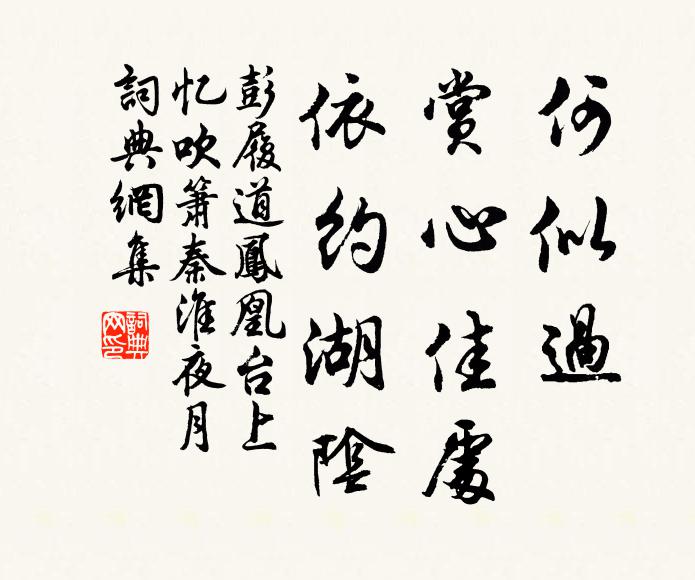 何似過
賞心佳處
依約湖陰
彭履道鳳凰台上
忆吹簫秦淮夜月
詞典網集
詞典網印